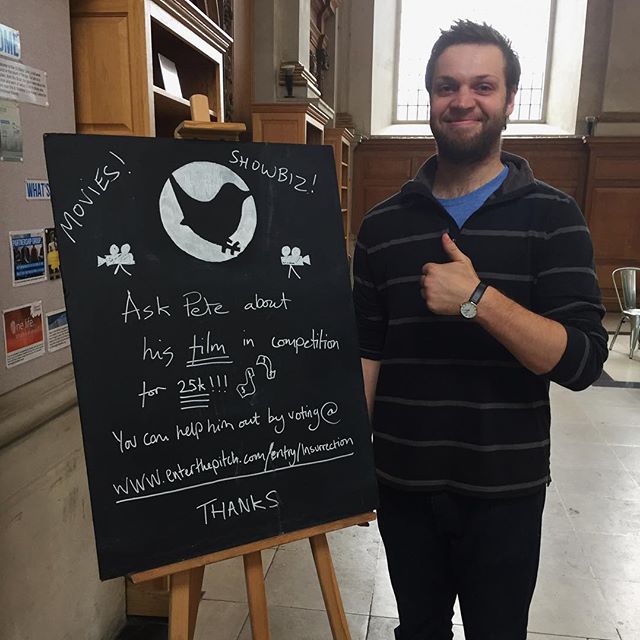 OME
WHAT'S
PARTNERSHIP GROUP
ne life
MOVIES!
SHOWBIZ!
Ask Pete about
his film in competition
for 25k!!!
You can help him out by voting@
www.enterthepitch.com/entry/Insurrection
THANKS